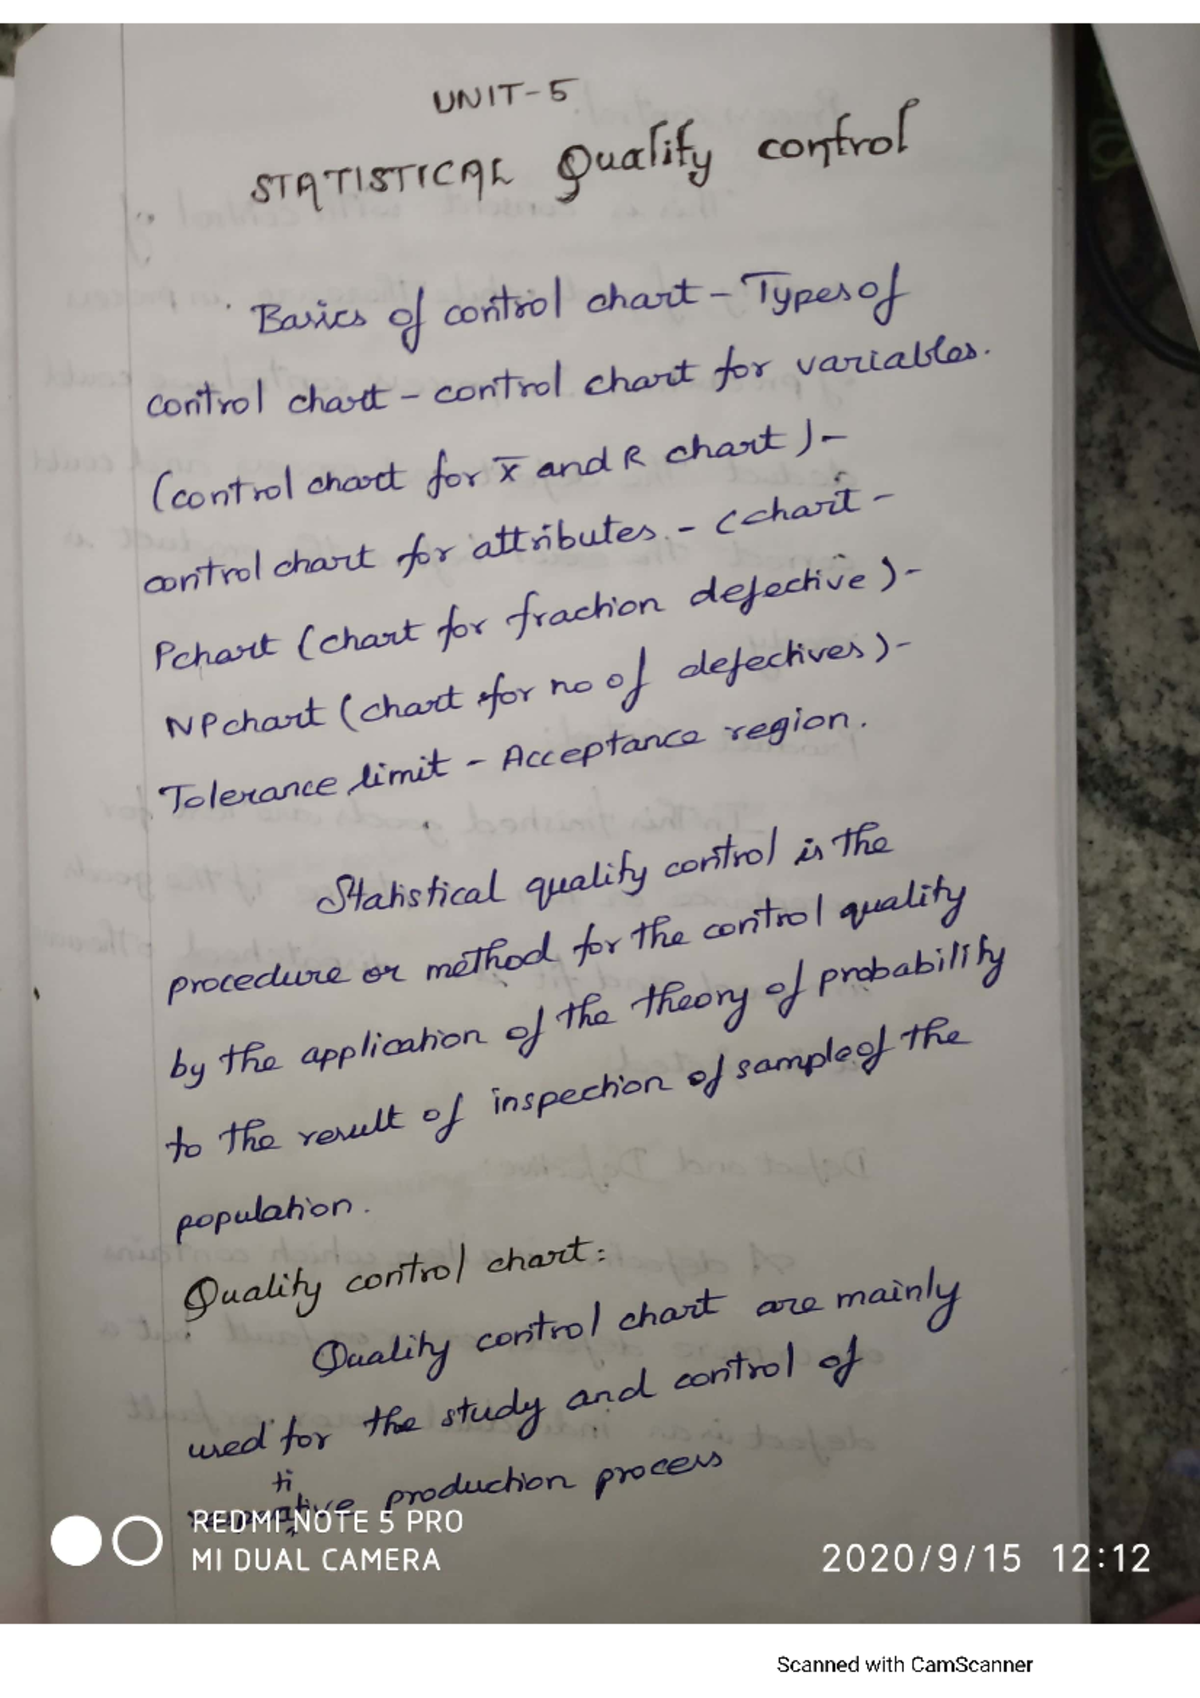 UNIT-5
STATISTICAL Quality control
Basics of control chart - Types of
control chart - control chart for variables.
(control chart for x̄ and R chart) -
control chart for attributes. - C chart -
P chart (chart for fraction defective) -
NP chart (chart for no of defectives) -
Tolerance limit - Acceptance region.
Statistical quality control is the
procedure or method for the control quality
by the application of the theory of probability
to the result of inspection of sample of the
population.
Quality control chart:
Quality control chart are mainly
used for the study and control of
ti
production process
REDMI NOTE 5 PRO
MI DUAL CAMERA
2020/9/15 12:12
Scanned with CamScanner